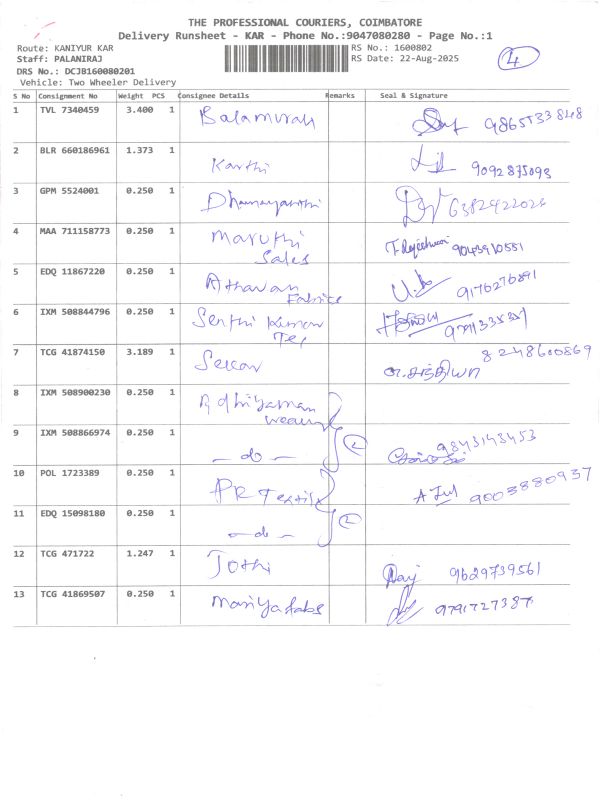 THE PROFESSIONAL COURIERS, COIMBATORE
Delivery Runsheet - KAR - Phone No.:9047080280 - Page No.:1
Route: KANIYUR KAR
RS No.: 1600802
4
Staff: PALANIRAJ
RS Date: 22-Aug-2025
DRS No.: DCJB160080201
Vehicle: Two Wheeler Delivery
S No Consignment No Weight PCS Consignee Details Remarks Seal & Signature
1 TVL 7340459 3.400 1 Balamurali 9865533848
2 BLR 660186961 1.373 1 Karthi 9092875093
3 GPM 5524001 0.250 1 Dhamayanthi 6382422026
4 MAA 711158773 0.250 1 Maruthi
Sales
T. Rajeshwari 9043910551
5 EDQ 11867220 0.250 1 Atharvan
Fabrics
9176276891
6 IXM 508844796 0.250 1 Senthi Kumar
Tex
7 TCG 41874150 3.189 1 Sekar 8248600869
அ.சந்தியா
8 IXM 508900230 0.250 1 Adhiyaman
2
9 IXM 508866974 0.250 1 - do - 9843143453
10 POL 1723389 0.250 1 PR Textile 9003880937
2
11 EDQ 15098180 0.250 1 - do -
12 TCG 471722 1.247 1 Jothi 9629739561
13 TCG 41869507 0.250 1 Mariya fabs 9791727387